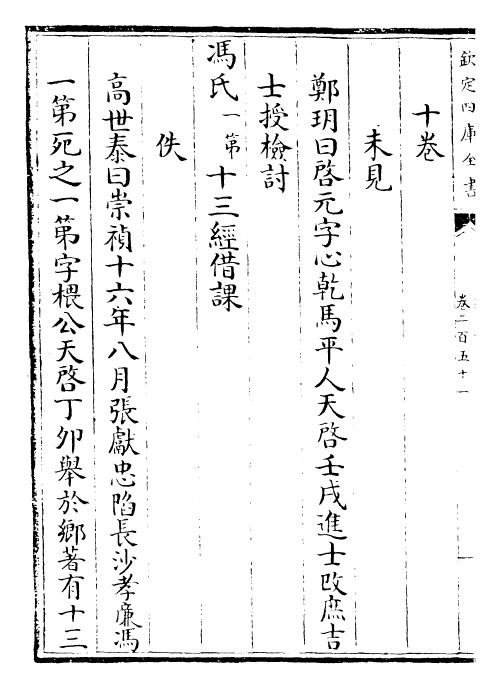 欽定四庫全書
卷二百五十一
十卷
未見
鄭玥曰啓元字心乾馬平人天啓壬戌進士改庶吉
士授檢討
馮氏一第十三經借課
佚
高世泰曰崇禎十六年八月張獻忠陷長沙孝廉馮
一第死之一第字楒公天啓丁夘舉於鄉著有十三